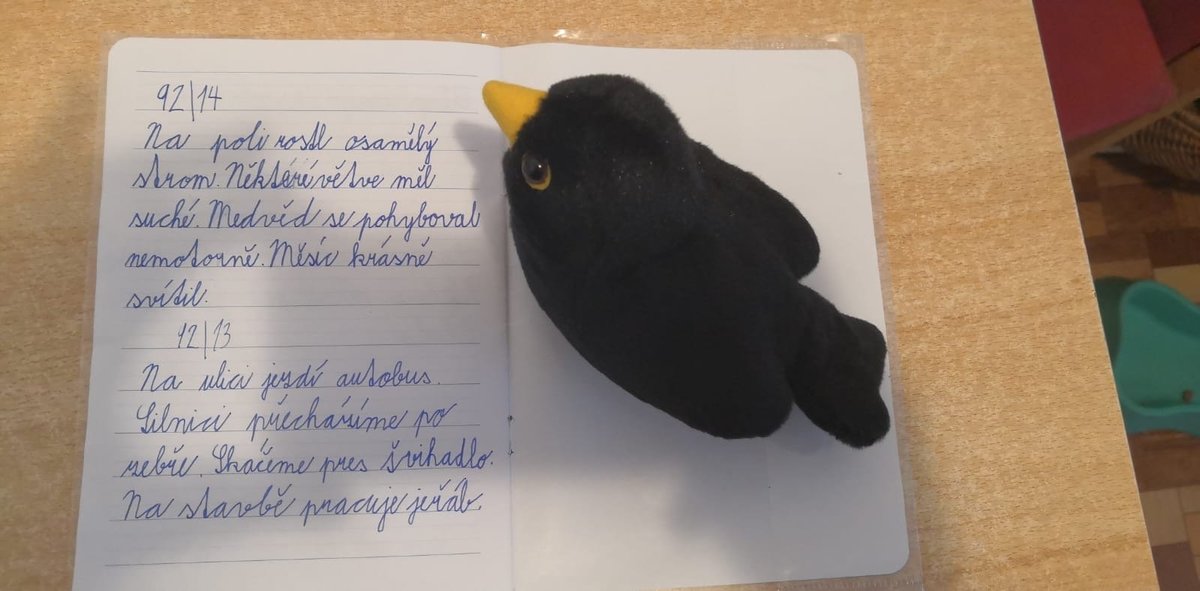 92/14
Na poli rostl osamělý
strom. Některé větve měl
suché. Medvěd se pohyboval
nemotorně. Měsíc krásně
svítil.
92/13
Na ulici jezdí autobus.
Silnici přecházíme po
zebře. Skáčeme přes švihadlo.
Na stavbě pracuje jeřáb.